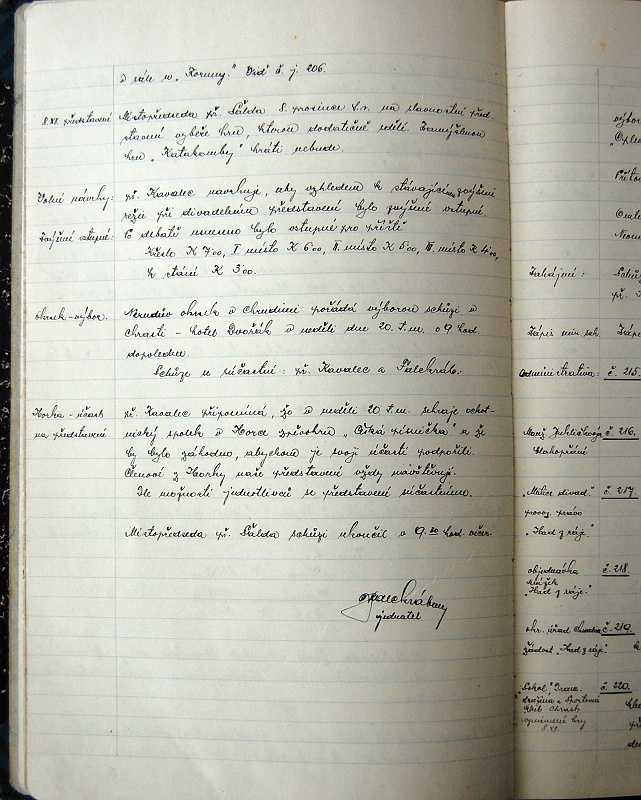 v sále u „Koruny.“ Viď č. j. 206.
8.XII. představení
Místopředseda př. Šálda 8. prosince t.r. na slavnostní před-
stavení vybéře hru, kterou dodatečně sdělí. Zamýšlenou
hru „Katakomby“ hráti nebude.
Volné návrhy:
př. Kavalec navrhuje, aby vzhledem k stávajícímu zvýšení
režií při divadelním představení bylo zvýšené vstupné
Zvýšené vstupné:
Po debatě usneseno bylo vstupné pro příště
Křeslo K 7'00, I místo K 6'00, II. místo K 5'00, III. místo K 4'00,
k stání K 3'00.
okrsek-výbor.
okrsek v Chrudimi pořádá výborovou schůzi v
Chrasti – hotel Dvořák v neděli dne 20. t.m. o 9. hod.
dopoledne.
Schůze se súčastní: př. Kavalec a Palechráb.
Horka – účast
na představení
př. Kavalec připomíná, že v neděli 20 t.m. sehraje ochot-
nický spolek v Horce zpěvohru „Cácká písnička“ a že
by bylo záhodno, abychom je svojí účastí podpořili.
Členové z Horky naše představení vždy navštěvují.
Dle možnosti jednotlivců se představení súčastníme.
Místopředseda př. Šálda schůzi ukončil o 9.30 hod. večer.
jednatel
Zahájení:
Schůz
př.
Zápis min. sch.
Zápis
Administrativa:
č. 215.
č. 216.
č. 217.
provoz. právo
„Had z ráje“
objednávka
č. 218.
„Had z ráje“
okr. úřad Chrudim
č. 219.
žádost „Had z ráje“
„Sokol“,
č. 220.
družina a Sportovní
klub Chrast
oznámení hry
8.XII.